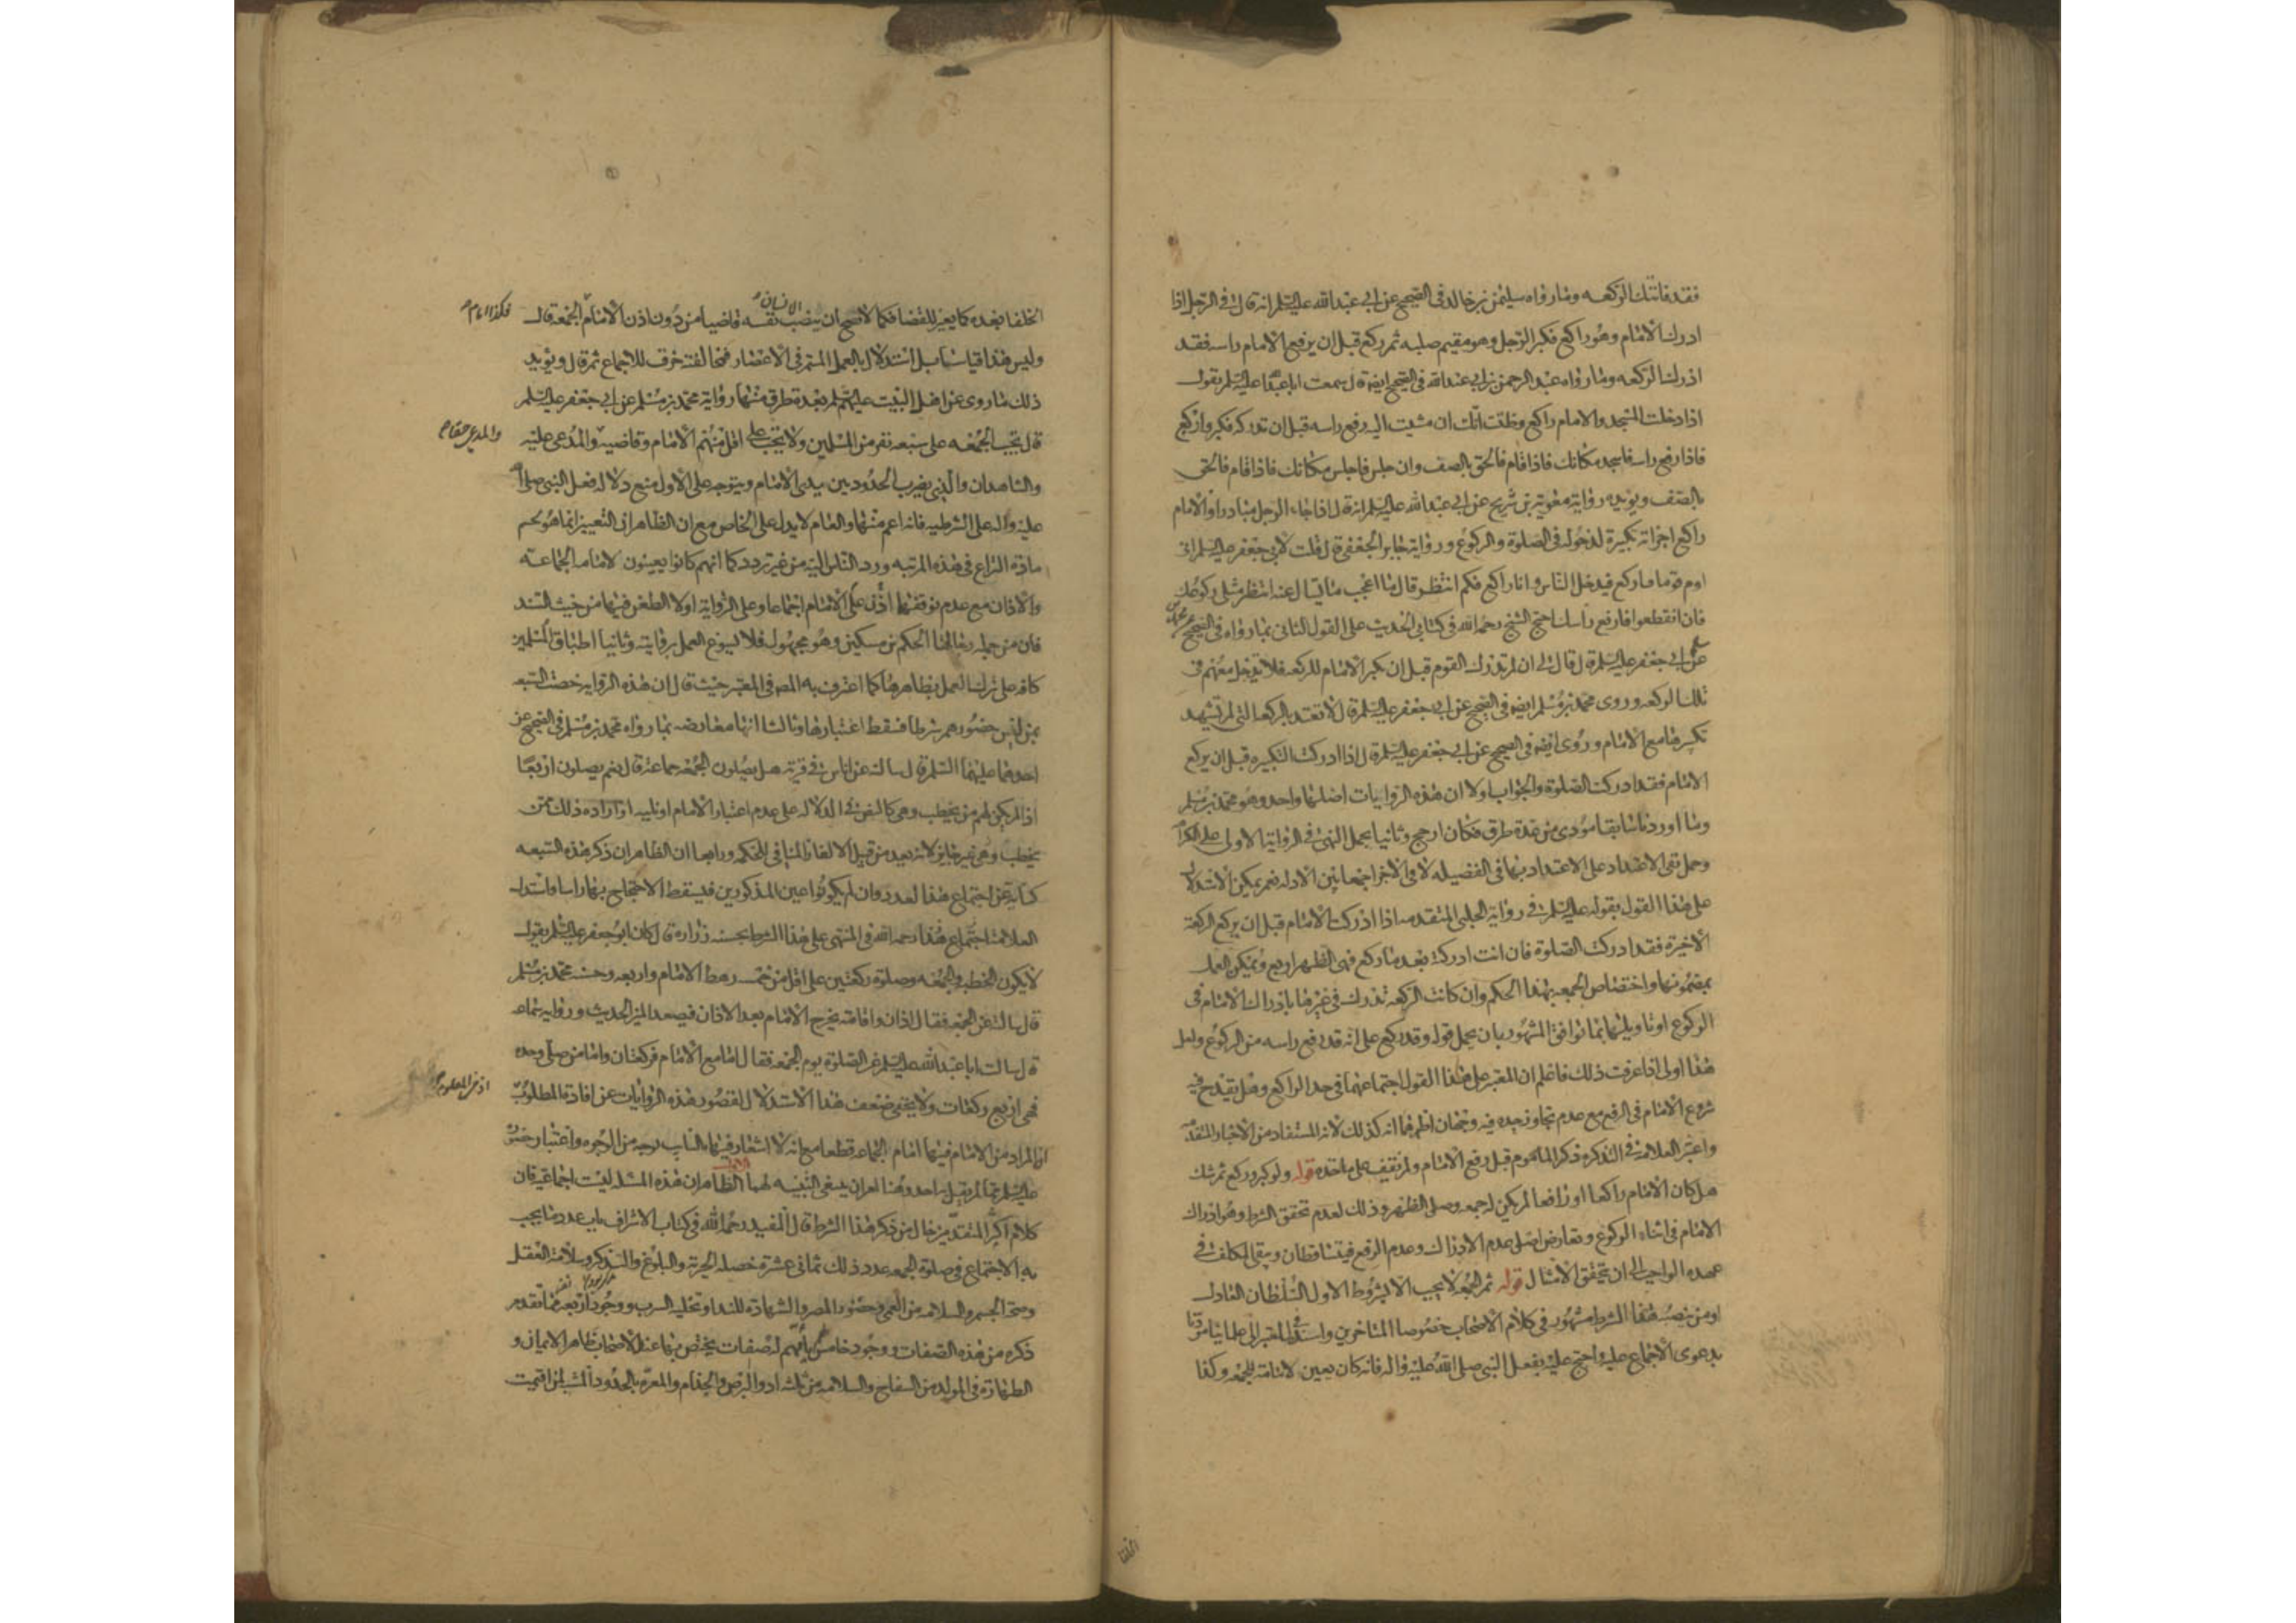 فقد فاتتك الركعه وما رواه سليمن بن خالد فى الصحيح عن ابى عبد الله عليه السلم انه قال فى الرجل اذا
ادرك الامام وهو راكع فكبر الرجل وهو مقيم صلبه ثم ركع قبل ان يرفع الامام راسه فقد
ادرك الركعه وما رواه عبد الرحمن بن ابى عبد الله فى الصحيح ايضا قال سمعت ابا عبد الله عليه السلم يقول
اذا دخلت المسجد والامام راكع وظننت انك ان مشيت اليه رفع راسه قبل ان تدركه فكبر واركع
فاذا رفع راسه فاسجد مكانك فاذا قام فالحق بالصف وان جلس فاجلس مكانك فاذا قام فالحق
بالصف ويؤيده رواية معوية بن شريح عن ابى عبد الله عليه السلم انه قال اذا جاء الرجل مبادرا والامام
راكع اجزاته تكبيرة لدخوله فى الصلوة والركوع ورواية جابر الجعفى قال قلت لابى جعفر عليه السلم انى
اوم قوما فاركع فيدخل الناس وانا راكع فكم انتظر قال ما اعجب ما تسال عنه انتظر مثلى ركوعك
فان انقطعوا فارفع راسك احتج الشيخ رحمه الله فى كتابى الحديث على القول الثانى بما رواه فى الصحيح
عن ابى جعفر عليه السلم قال قال لى ان لم تدرك القوم قبل ان يكبر الامام للركعه فلا تدخل معهم فى
تلك الركعه وروى محمد بن مسلم ايضا فى الصحيح عن ابى جعفر عليه السلم قال لا تعتد بالركعه التى لم تشهد
تكبيرها مع الامام وروى ايضا فى الصحيح عن ابى جعفر عليه السلم قال اذا ادركت التكبيره قبل ان يركع
الامام فقد ادركت الصلوة والجواب اولا ان هذه الروايات اصلها واحد وهو محمد بن مسلم
وما اوردناه سابقا مودى من عدة طرق فكان ارجح وثانيا بحمل النهى فى الرواية الاولى على الكراهة
وحمل نفى الاعتداد على الاعتداد بها فى الفضيله لا فى الاجزا جمعا بين الادله نعم يمكن الاستدلال
على هذا القول بقوله عليه السلم فى رواية الحلبى المتقدمه اذا ادركت الامام قبل ان يركع الركعة
الاخيرة فقد ادركت الصلوة فان انت ادركته بعد ما ركع فهى الظهر اربع ويمكن العمل
بمضمونها واختصاص الجمعه بهذا الحكم وان كانت الركعه تدرك فى غيرها بادراك الامام فى
الركوع او تاويلها بما توافق المشهور بان يحمل قوله وقد ركع على انه قد رفع راسه من الركوع ولعل
هذا اولى اذا عرفت ذلك فاعلم ان المعتبر على هذا القول اجتماعهما فى حد الراكع وهل يقدح فيه
شروع الامام فى الرفع مع عدم تجاوز حده فيه وجهان اظهرهما انه كذلك لانه المستفاد من الاخبار المتقدمه
واعتبر العلامه فى التذكره ذكر الماموم قبل رفع الامام ولم نقف على ماخذه قوله ولو كبر وركع ثم شك
هل كان الامام راكعا او رافعا لم يكن له جمعه وصلى الظهر وذلك لعدم تحقق الشرط وهو ادراك
الامام فى اثناء الركوع وتعارض اصلى عدم الادراك وعدم الرفع فيتساقطان ويبقى المكلف فى
عهده الواجب الى ان يتحقق الامتثال قوله ثم الجمعه لا يجب الا بشروط الاول السلطان العادل
او من نصبه هذا الشرط مشهور فى كلام الاصحاب خصوصا المتاخرين واسنده فى المعتبر الى علمائنا
بدعوى الاجماع عليه واحتج عليه بفعل النبى صلى الله عليه واله فانه كان يعين لامامة الجمعه وكذا
الخلفا بعده كما يعين للقضا فكما لا يصح ان ينصب الانسان نفسه قاضيا من دون اذن الامام الجمعه قال
فكذا امام
وليس هذا قياسا بل استدلال بالعمل المستمر فى الاعصار فمخالفته خرق للاجماع ثم قال ويؤيد
ذلك ما روى عن اهل البيت عليهم السلم بعدة طرق منها رواية محمد بن مسلم عن ابى جعفر عليه السلم
قال يجب الجمعه على سبعه نفر من المسلمين ولا يجب على اقل منهم الامام وقاضيه والمدعى عليه
والمدعى حقا
والشاهدان والذى يضرب الحدود بين يدى الامام ويتوجه على الاول منع دلاله فعل النبى صلى الله
عليه واله على الشرطيه فانه اعم منها والعام لا يدل على الخاص مع ان الظاهر ان التعيين انما هو لحسم
مادة النزاع فى هذه المرتبه ورد الناس اليه من غير تردد كما انهم كانوا يعينون لامامه الجماعة
والاذان مع عدم توقفهما على اذن الامام اجماعا وعلى الرواية اولا الطعن فيها من حيث السند
فان من جملة رجالها الحكم بن مسكين وهو مجهول فلا يسوغ العمل بروايته وثانيا اطباق المسلمين
كافه على ترك العمل بظاهرها كما اعترف به المص فى المعتبر حيث قال ان هذه الروايه خصت السبعه
بمن ليس حضورهم شرطا فسقط اعتبارها وثالثا انها معارضه بما رواه محمد بن مسلم فى الصحيح عن
احدهما عليهما السلم قال سالته عن اناس فى قرية هل يصلون الجمعه جماعة قال نعم يصلون اربعا
اذا لم يكن لهم من يخطب وهى كالنص فى الدلاله على عدم اعتبار الامام او نايبه اذ ارادة ذلك ممن
يخطب وهى غير جايز لانه بعيد من قبيل الالغاز المنافى للحكمه ورابعا ان الظاهر ان ذكر هذه السبعه
كناية عن اجتماع هذا العدد وان لم يكونوا عين المذكورين فيسقط الاحتجاج بها راسا واستدل
العلامه اجتماع هذا رحمه الله فى المنتهى على هذا الشرط بحسنه زرارة قال كان ابو جعفر عليه السلم يقول
لا يكون الخطبه والجمعه وصلوة ركعتين على اقل من خمسه رهط الامام واربعه وحسنه محمد بن مسلم
قال سالته عن الجمعه فقال اذان واقامه يخرج الامام بعد الاذان فيصعد المنبر الحديث ورواية سماعه
قال سالت ابا عبد الله عليه السلم عن الصلوة يوم الجمعه فقال اما مع الامام فركعتان واما من صلى وحده
فهى اربع ركعات ولا يخفى ضعف هذا الاستدلال لقصور هذه الروايات عن افادة المطلوب
اذ من المعلوم
ان المراد من الامام فيها امام الجماعه قطعا مع انه لا اشعار فيها بالنايب بوجه من الوجوه واعتبار حضوره
عليه السلم مما لم يقل به احد وهنا امران ينبغى التنبيه لهما الاول الظاهر ان هذه المسئله ليست اجماعية فان
كلام اكثر المتقدمين خال من ذكر هذا الشرط قال المفيد رحمه الله فى كتاب الاشراف باب عدد ما يجب
به الاجتماع فى صلوة الجمعه عدد ذلك ثمانى عشرة خصله الحرية والبلوغ والتذكير وسلامة العقل
وصحة الجسم والسلامه من العمى وحضور المصر والشهادة للنداء وتخليه السرب ووجود اربعه نفر بما تقدم
ذكره من هذه الصفات ووجود خامس يأمهم له صفات يختص بها عند الاصحاب ظاهر الايمان و
الطهارة فى المولد من السفاح والسلامه من ثلثه ادوا البرص والجذام والمعرة بالحدود المشينه لمن اقيمت